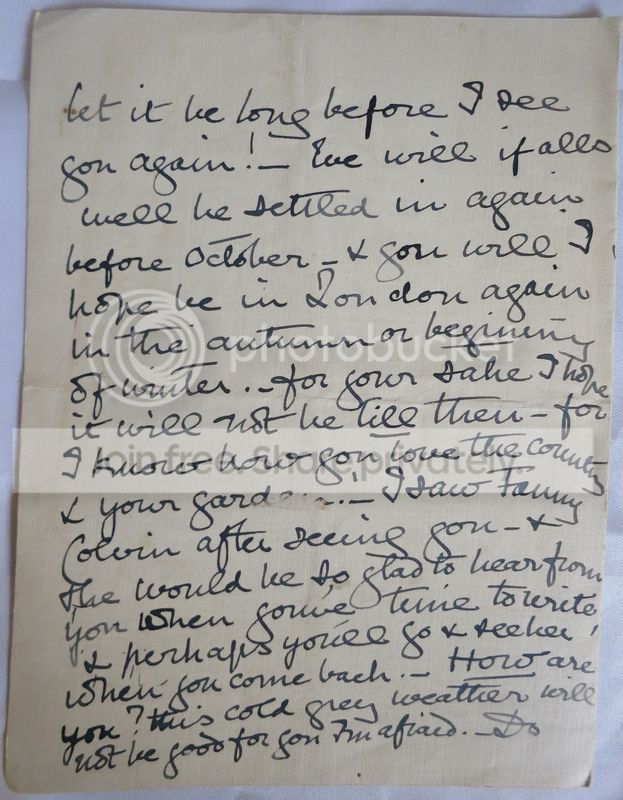 let it be long before I see
you again! — We will if all's
well be settled in again
before October — & you will I
hope be in London again
in the autumn or beginning
of winter. — for your sake I hope
it will not be till then — for
I know how you love the country
& your garden. — I saw Fanny
Colvin after seeing you — &
she would be so glad to hear from
you when you've time to write
& perhaps you'll go & see her
when you come back. — How are
you? this cold grey weather will
not be good for you I'm afraid. — Do
photobucket
Join free. Share privately.